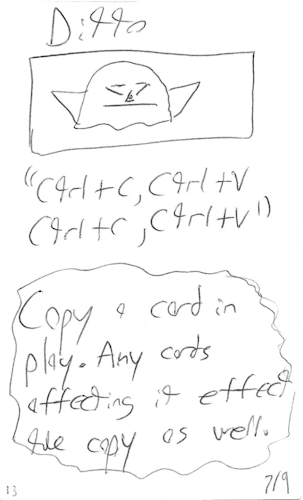 Ditto
"Ctrl+C, Ctrl+V
Ctrl+C, Ctrl+V"
Copy a card in
play. Any cards
affecting it effect
the copy as well.
13
7/9